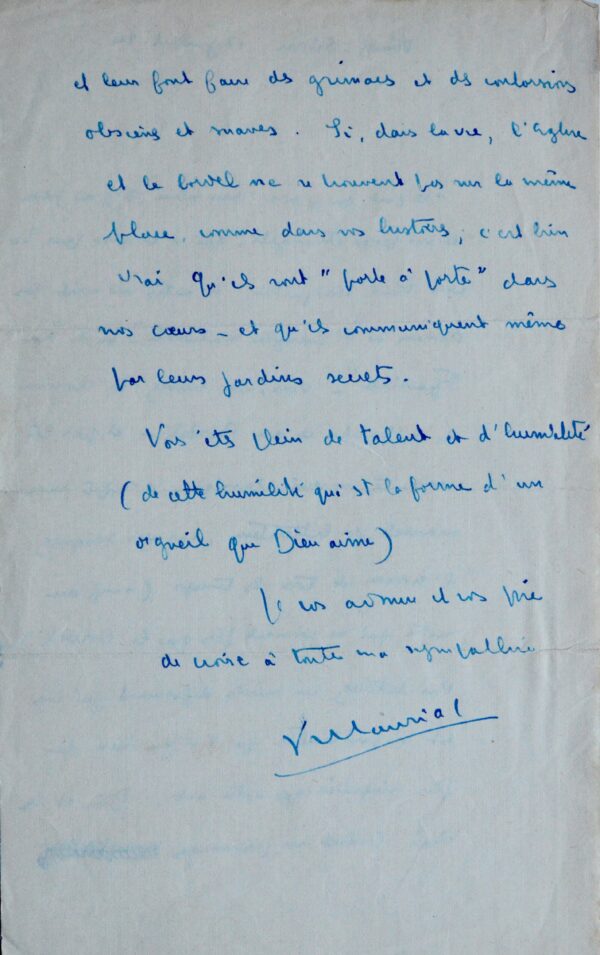 et leur font faire des grimaces et des contorsions
obscènes et suaves. Si, dans la vie, l'église
et le bordel ne se trouvent pas sur la même
place, comme dans vos histoires, c'est bien
vrai qu'ils sont "porte à porte" dans
nos cœurs - et qu'ils communiquent même
par leurs jardins secrets.
Vous êtes plein de talent et d'humilité
(de cette humilité qui est la forme d'un
orgueil que Dieu aime)
Je vos admire et vos prie
de croire à toute ma sympathie
F Mauriac